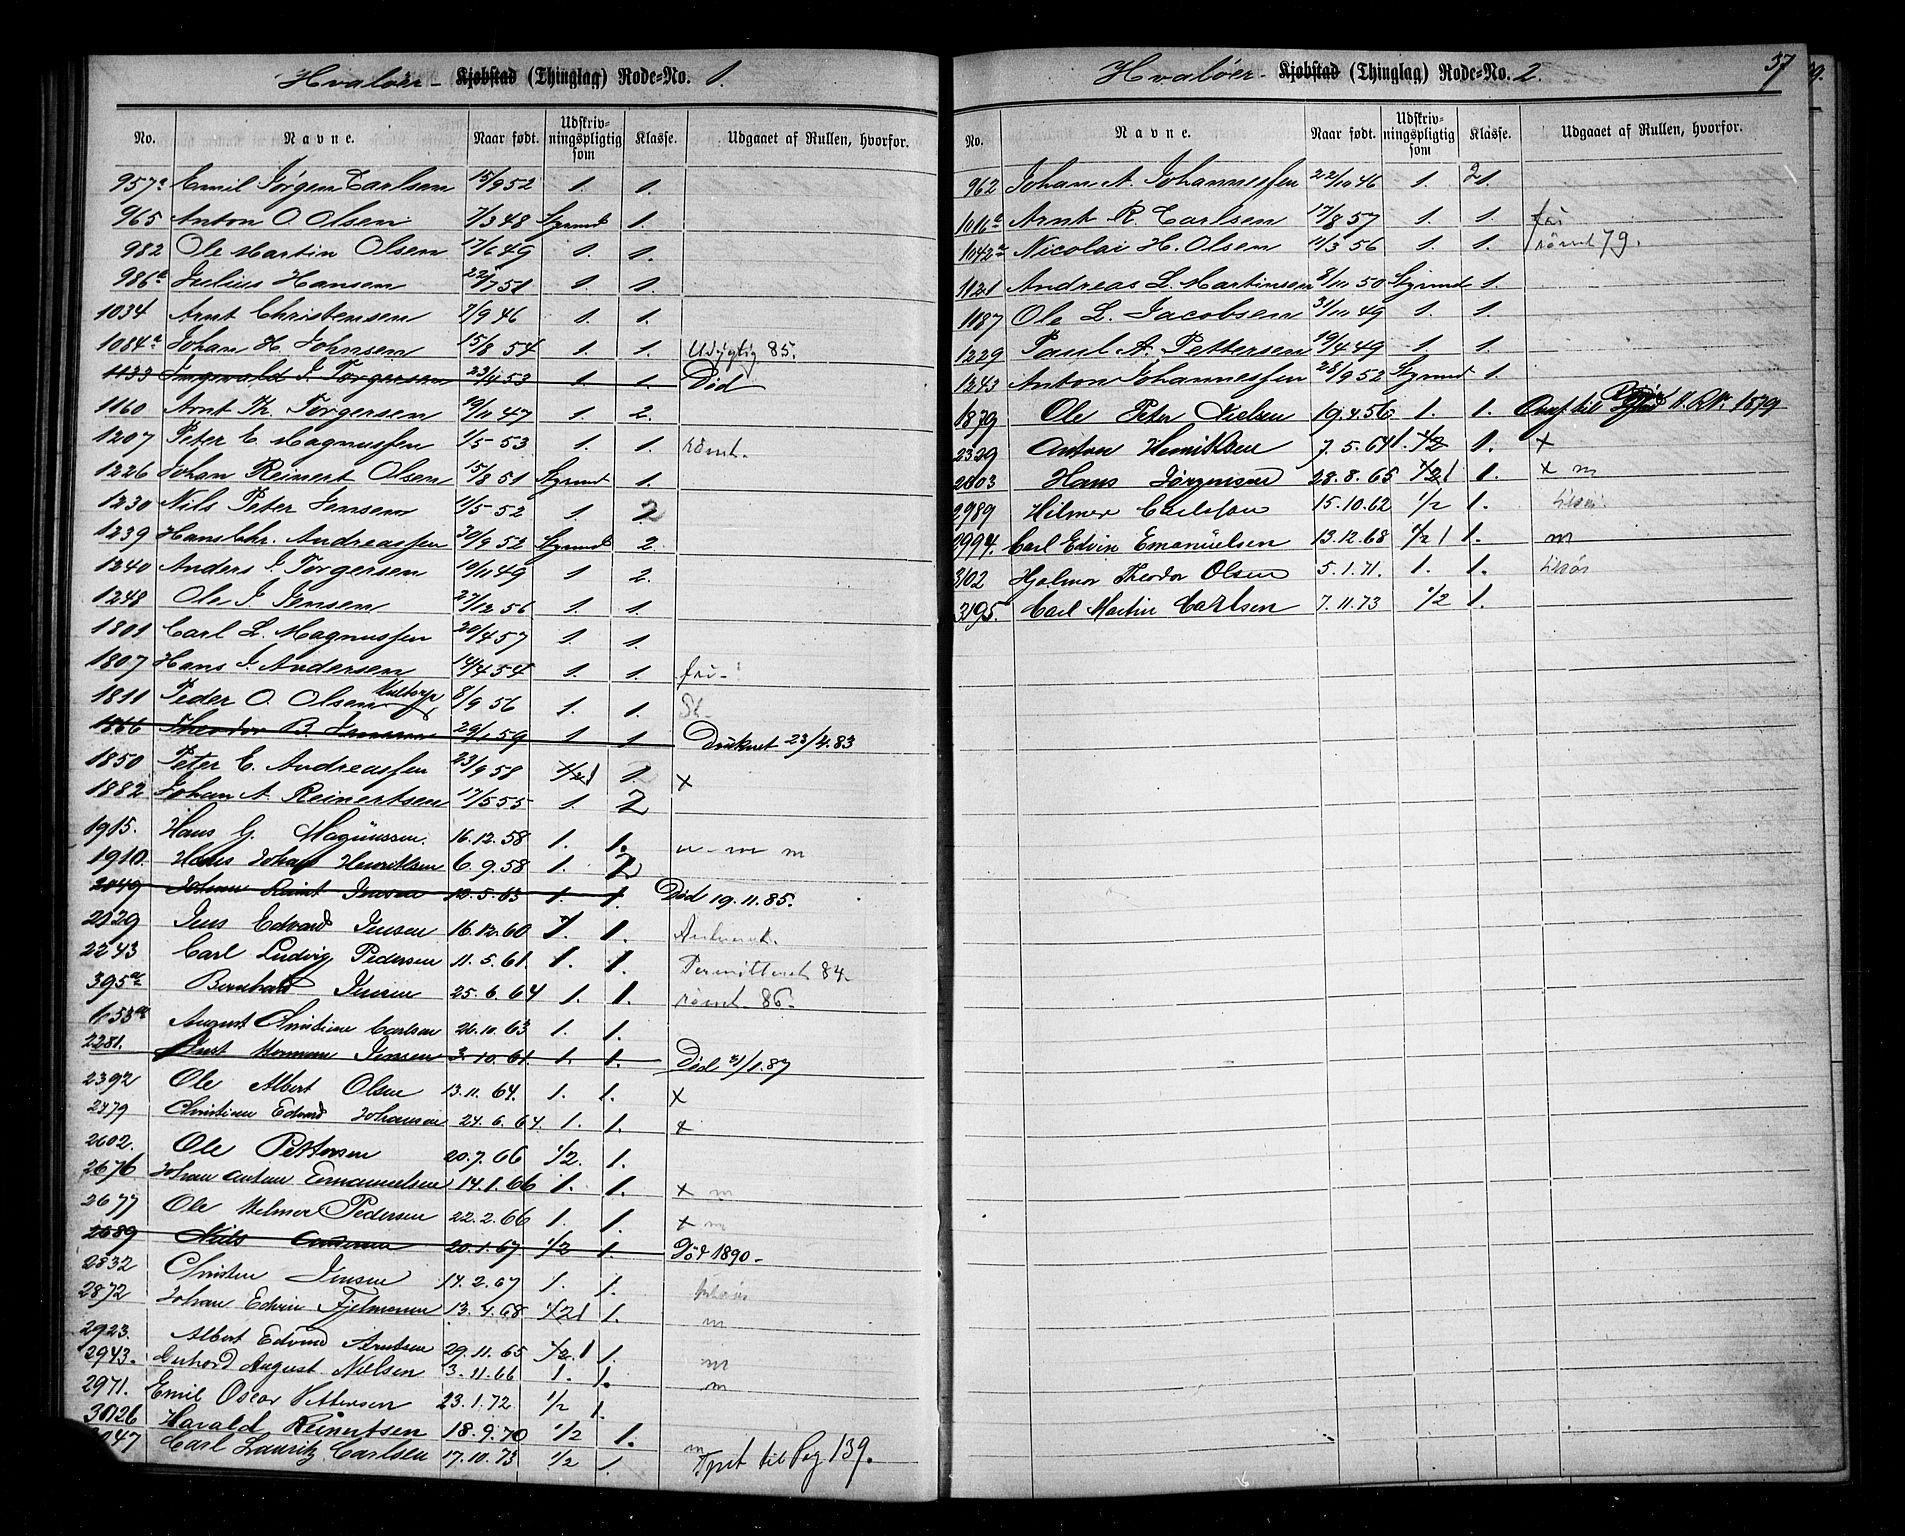 Hvaløer - Kjøbstad (Thinglag) Rode-No. 1.
No. Navne. Naar født. Udskrivningspligtig som Klasse. Udgaaet af Rullen, hvorfor.
957a Emil Jörgen Carlsen 15/9 52 1. 1.
965 Anton O Olsen 7/3 48 Styrmd 1.
982 Ole Martin Olsen 17/6 49 1. 1.
986a Julius Hansen 22/7 51 1. 1.
1034 Arnt Christensen 7/9 46 1. 1.
1084a Johan H. Johnsen 15/8 54 1. 1. Udygtig 85.
1133 Ingvald J. Torgersen 23/4 53 1 1. Död
1160 Arnt Th. Torgersen 19/11 47 1. 2.
1207 Peter E. Magnussen 1/5 53 1. 1. römt.
1226 Johan Reinert Olsen 15/8 51 Styrmd 1.
1230 Nils Peter Jensen 11/5 52 1. 2
1239 Hans Chr. Andreassen 30/9 52 Styrmd 2.
1240 Anders J. Torgersen 19/11 49 1 2.
1248 Ole J. Jensen 27/12 56 1. 1.
1801 Carl L. Magnussen 20/4 57 1 1.
1807 Hans J. Andersen 14/4 54 1. 1. fri
1811 Peder O. Olsen 8/9 56 1. 1.
1866 Theodor B. Jensen 29/1 59 1 1 Druknet 23/4.83
1850 Peter E. Andreassen 23/9 58 1/2 1 1. x
1882 Johan A. Reinertsen 17/5 55 1. 2
1915. Hans G. Magnussen. 16.12.58 1. 1.
1910. Hans Johan Henriksen 6.9.58 1. 2
2049 Johan Reint Jensen 12.5.63 1. 1. Död 19.11.85.
2029 Jens Edvard Jensen 16.12.60 1. 1.
2243 Carl Ludvig Pedersen 11.5.61. 1. 1. Permitteret 84.
395 Bernhard Jensen 25.6.64 1. 1. römt 86.
1053 August Christian Carlsen 26.10.63 1. 1.
2281. Herman Jensen 3.10.61 1. 1. Död 31/1.87
2392 Ole Albert Olsen 13.11.64. 1. 1. x
2479 Christian Edvard Johansen 24.6.64. 1. 1. x
2602. Ole Pettersen 20.7.66 1/2. 1.
2676 Johan Anton Emanuelsen 14.1.66 1. 1. x m
2677 Ole Helmer Pedersen 22.2.66 1. 1. x m
2689 Nils Andersen 20.1.67 1/2 1. Död 1890-
2832 Christen Jensen 14.2.67 1. 1.
2872 Johan Edvin Fjelmann 13.4.68 1/2 1 1. m
2923. Albert Edvard Arntsen 29.11.65 1/2. 1 1. m
2943. Gerhard August Nielsen 3.11.66 1. 1. m
2971. Emil Oscar Pettersen 23.1.72 1/2 1.
3026 Harald Reinertsen 18.9.70 1/2 1. m
Carl Lauritz Carlsen 17.10.73 1/2 1. Tpt til Pag 139.
37
Hvaløer - Kjøbstad (Thinglag) Rode-No. 2.
No. Navne. Naar født. Udskrivningspligtig som Klasse. Udgaaet af Rullen, hvorfor.
962 Johan A. Johannessen 22/10 46 1. 2
1016a Arnt R. Carlsen 17/8 57 1. 1. fri
1042a Nicolai H. Olsen 11/3 56 1. 1. römt 79.
1121 Andreas L. Martinsen 8/11 50 Styrmd 1.
1187 Ole L. Jacobsen 31/11 49 1. 1.
1229 Paul A. Pettersen 19/4 49 1. 1.
1243 Anton Johannessen 28/9 52 Styrmd 1.
1879 Ole Peter Nielsen 19.4.56 1. 1. Overf. til 1879
2329 Anton Henriksen 7.5.64 1. 1/2 1. x
2803 Hans Jörgensen 28.8.65 1/2 1 1. x m
2989 Hilmer Carlsson 15.10.62 1/2 1.
2994. Carl Edvin Emanuelsen 13.12.68 1/2 1 1. m
3102 Hjalmar Theodor Olsen 5.1.71. 1. 1.
3195. Carl Martin Carlsen 7.11.73 1/2 1.